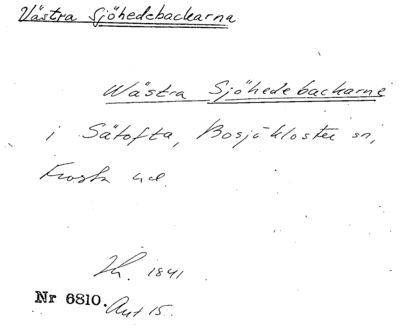 Västra Sjöhedebackarna
Wästra Sjöhedebackarne
i Sätofta, Bosjökloster sn,
Frosta hd.
1841
Nr 6810. Akt 15.